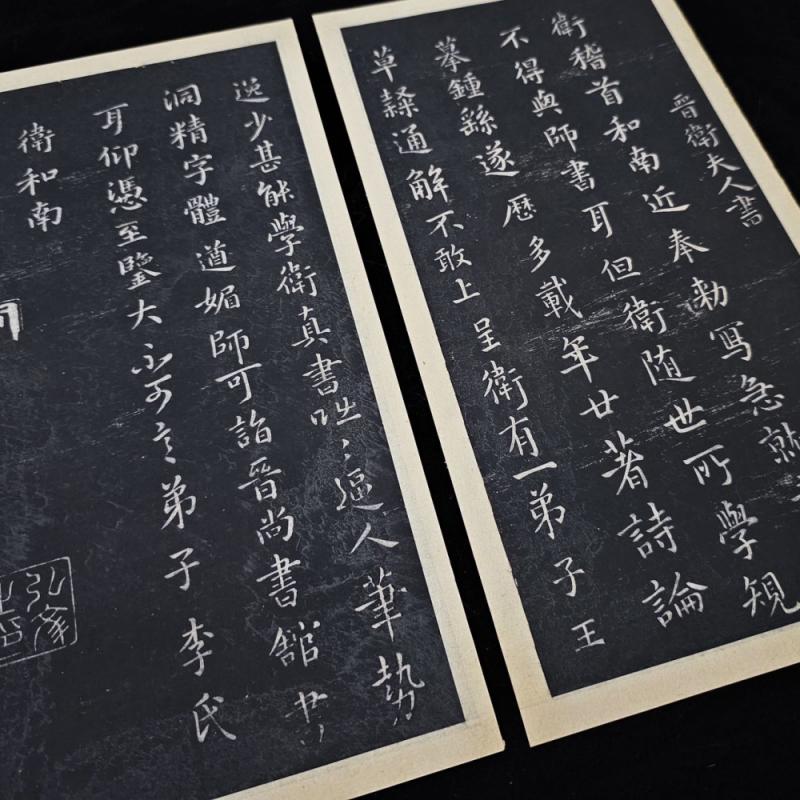 晉衛夫人書
衛稽首和南近奉勑寫急就
不得與師書耳但衛随世所學規
摹鍾繇遂歷多載年廿著詩論
草隸通解不敢上呈衛有一弟子王
逸少甚能學衛真書咄〻逼人筆勢
洞精字體遒媚師可詣晉尚書館書
耳仰憑至鑒大不可言弟子李氏
衛和南